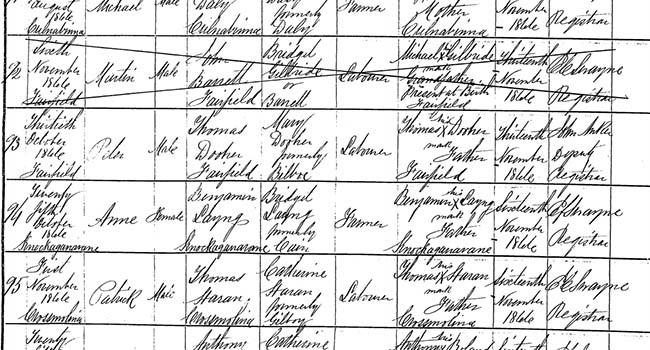 August Michael Male Daly Daly Farmer Mother November
1866 formerly Registrar
Culnabinna Culnabinna Daly Culnabinna 1866
92 Sixth John Bridget Michael X Gilbride Thirteenth
November Martin Male Barrett Gilbride Labourer mark Grandfather November
1866 or Present at Birth 1866 Registrar
Fairfield Fairfield Barrett Fairfield
93 Thirtieth Thomas Mary Thomas his X Dooher Thirteenth John
October Peter Male Dooher Dooher Labourer mark Father November Deputy
1866 formerly 1866 Registrar
Fairfield Fairfield Fairfield
94 Twenty Benjamin Bridget Benjamin his X Layng Sixteenth
fifth October Anne Female Layng Layng Farmer mark Father November
1866 formerly 1866 Registrar
Knockaganarane Knockaganarane Cain Knockaganarane
95 First Thomas Catherine Thomas his X Haran Sixteenth
November Patrick Male Haran Haran Labourer mark Father November
1866 formerly 1866 Registrar
Crossmolina Crossmolina Gilboy Crossmolina
Twenty Anthony Catherine Anthony his X